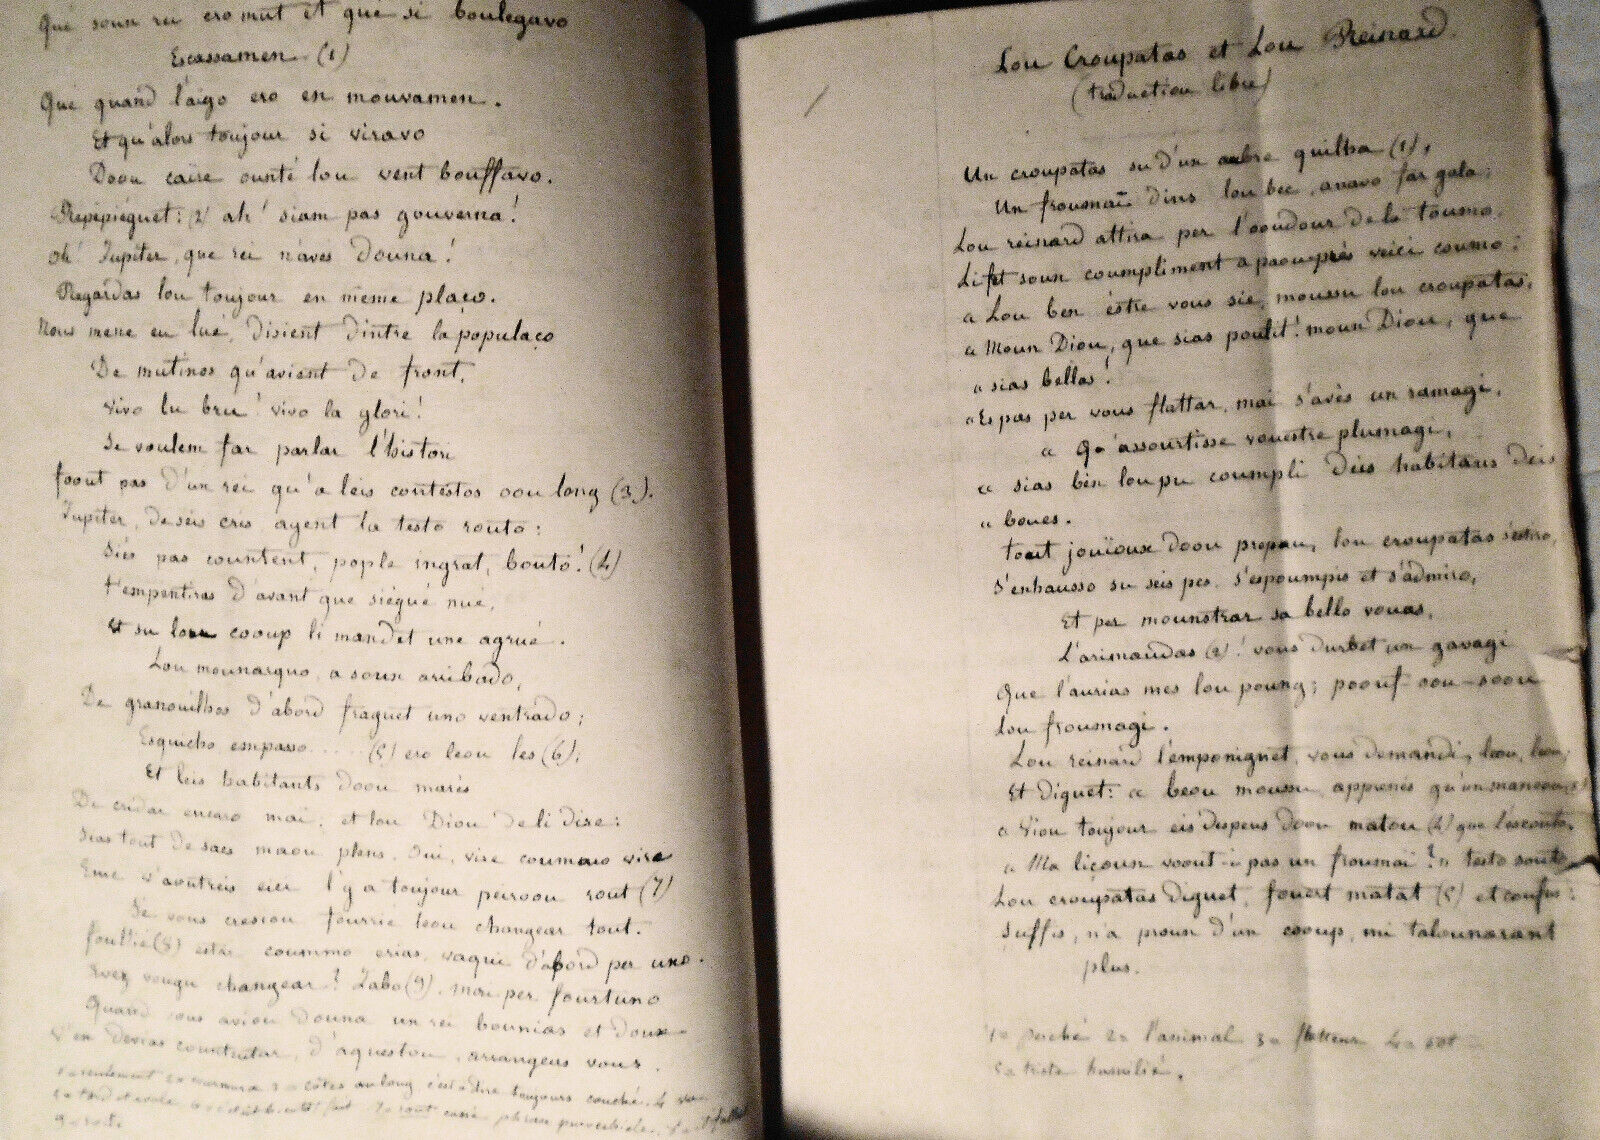 Que soun rei ero mut et que si boulegavo
Escassamen (1)
Que quand l'aigo ero en mouvamen.
Et qu'alors toujour si viravo
Doou caire ounté lou vent bouffavo.
Repepiéguet: (2) ah! siam pas gouverna!
Oh! Jupiter, que rei n'avès douna!
Regardas lou toujour en meme plaço.
Nous mene en lué, disient dintre la populaço
De mutinos qu'avient de front.
Vivo lu bru! vivo la glori!
Se voulem far parlar l'histori
foout pas d'un rei qu'a leis contestos oou long (3).
Jupiter, de seis cris, agent la testo routo:
Siès pas countent, pople ingrat, bouto! (4)
t'empentiras d'avant que siégué nué,
Et su lou cooup li mandet une agrué.
Lou mounarquo, a soun arribado,
De granouilhos d'abord fraguet uno ventrado;
Esquicho empasso ..... (5) ero leou les (6),
Et leis habitants doou marés
De cridar encaro mai, et lou Diou de li dire:
Sias tout de sacs maou plens. Oui, vire coumo vire
Eme v'aoutreis eici l'y a toujour peiroou rout (7)
Se vous cresiou fourrié leou changear tout.
foullié (8) estre coummo erias, vaqui d'abord per uno.
Avez vougu changear? Zabo (9), mai per fourtuno
Quand vous aviou douna un rei bounias et doux
V'en devias countentar, d'aquestou, arrangeas vous.
1o seulement 2o murmura 3o côtes au long c'est à dire toujours couché. 4o
Lou Croupatas et Lou Reinard.
(traduction libre)
Un croupatas su d'un aubre quilha (1),
Un froumai dins lou bec, anavo far gala;
Lou reinard attira per l'ooudour de la toumo,
Li fet soun coumpliment a paou près veici coumo:
« Lou ben èstre vous sie, moussu lou croupatas,
« Moun Diou, que sias poulit! moun Diou, que
« sias bellas!
« Es pas per vous flattar, mai s'avès un ramagi,
« Qu'assourtisse vouestre plumagi,
« Sias bèn lou pu coumpli deis habitans deis
« boues.
tout jouïoux doou prepau, lou croupatas s'estiro,
S'enhausso su seis pes, s'espoumpis et s'admiro,
Et per mounstrar sa bello voues,
L'arimaudas (2)! vous durbet un gavagi
Que l'aurias mes lou poung; poouf oou soou
Lou froumagi.
Lou reinard l'empouignet, vous demandi, leou, leou,
Et diguet: « beou moussu, apprenès qu'un
« Viou toujour eis despens doou matou (4) que l'escouto,
« Ma liçoun voout-i pas un froumai? » testo souto,
Lou croupatas diguet, fouert matat (5) et confus:
Suffis, n'a proun d'un cooup, mi talounarant
plus.
1o perché 2o l'animal 3o flatteur 4o sot
5o triste humilié.